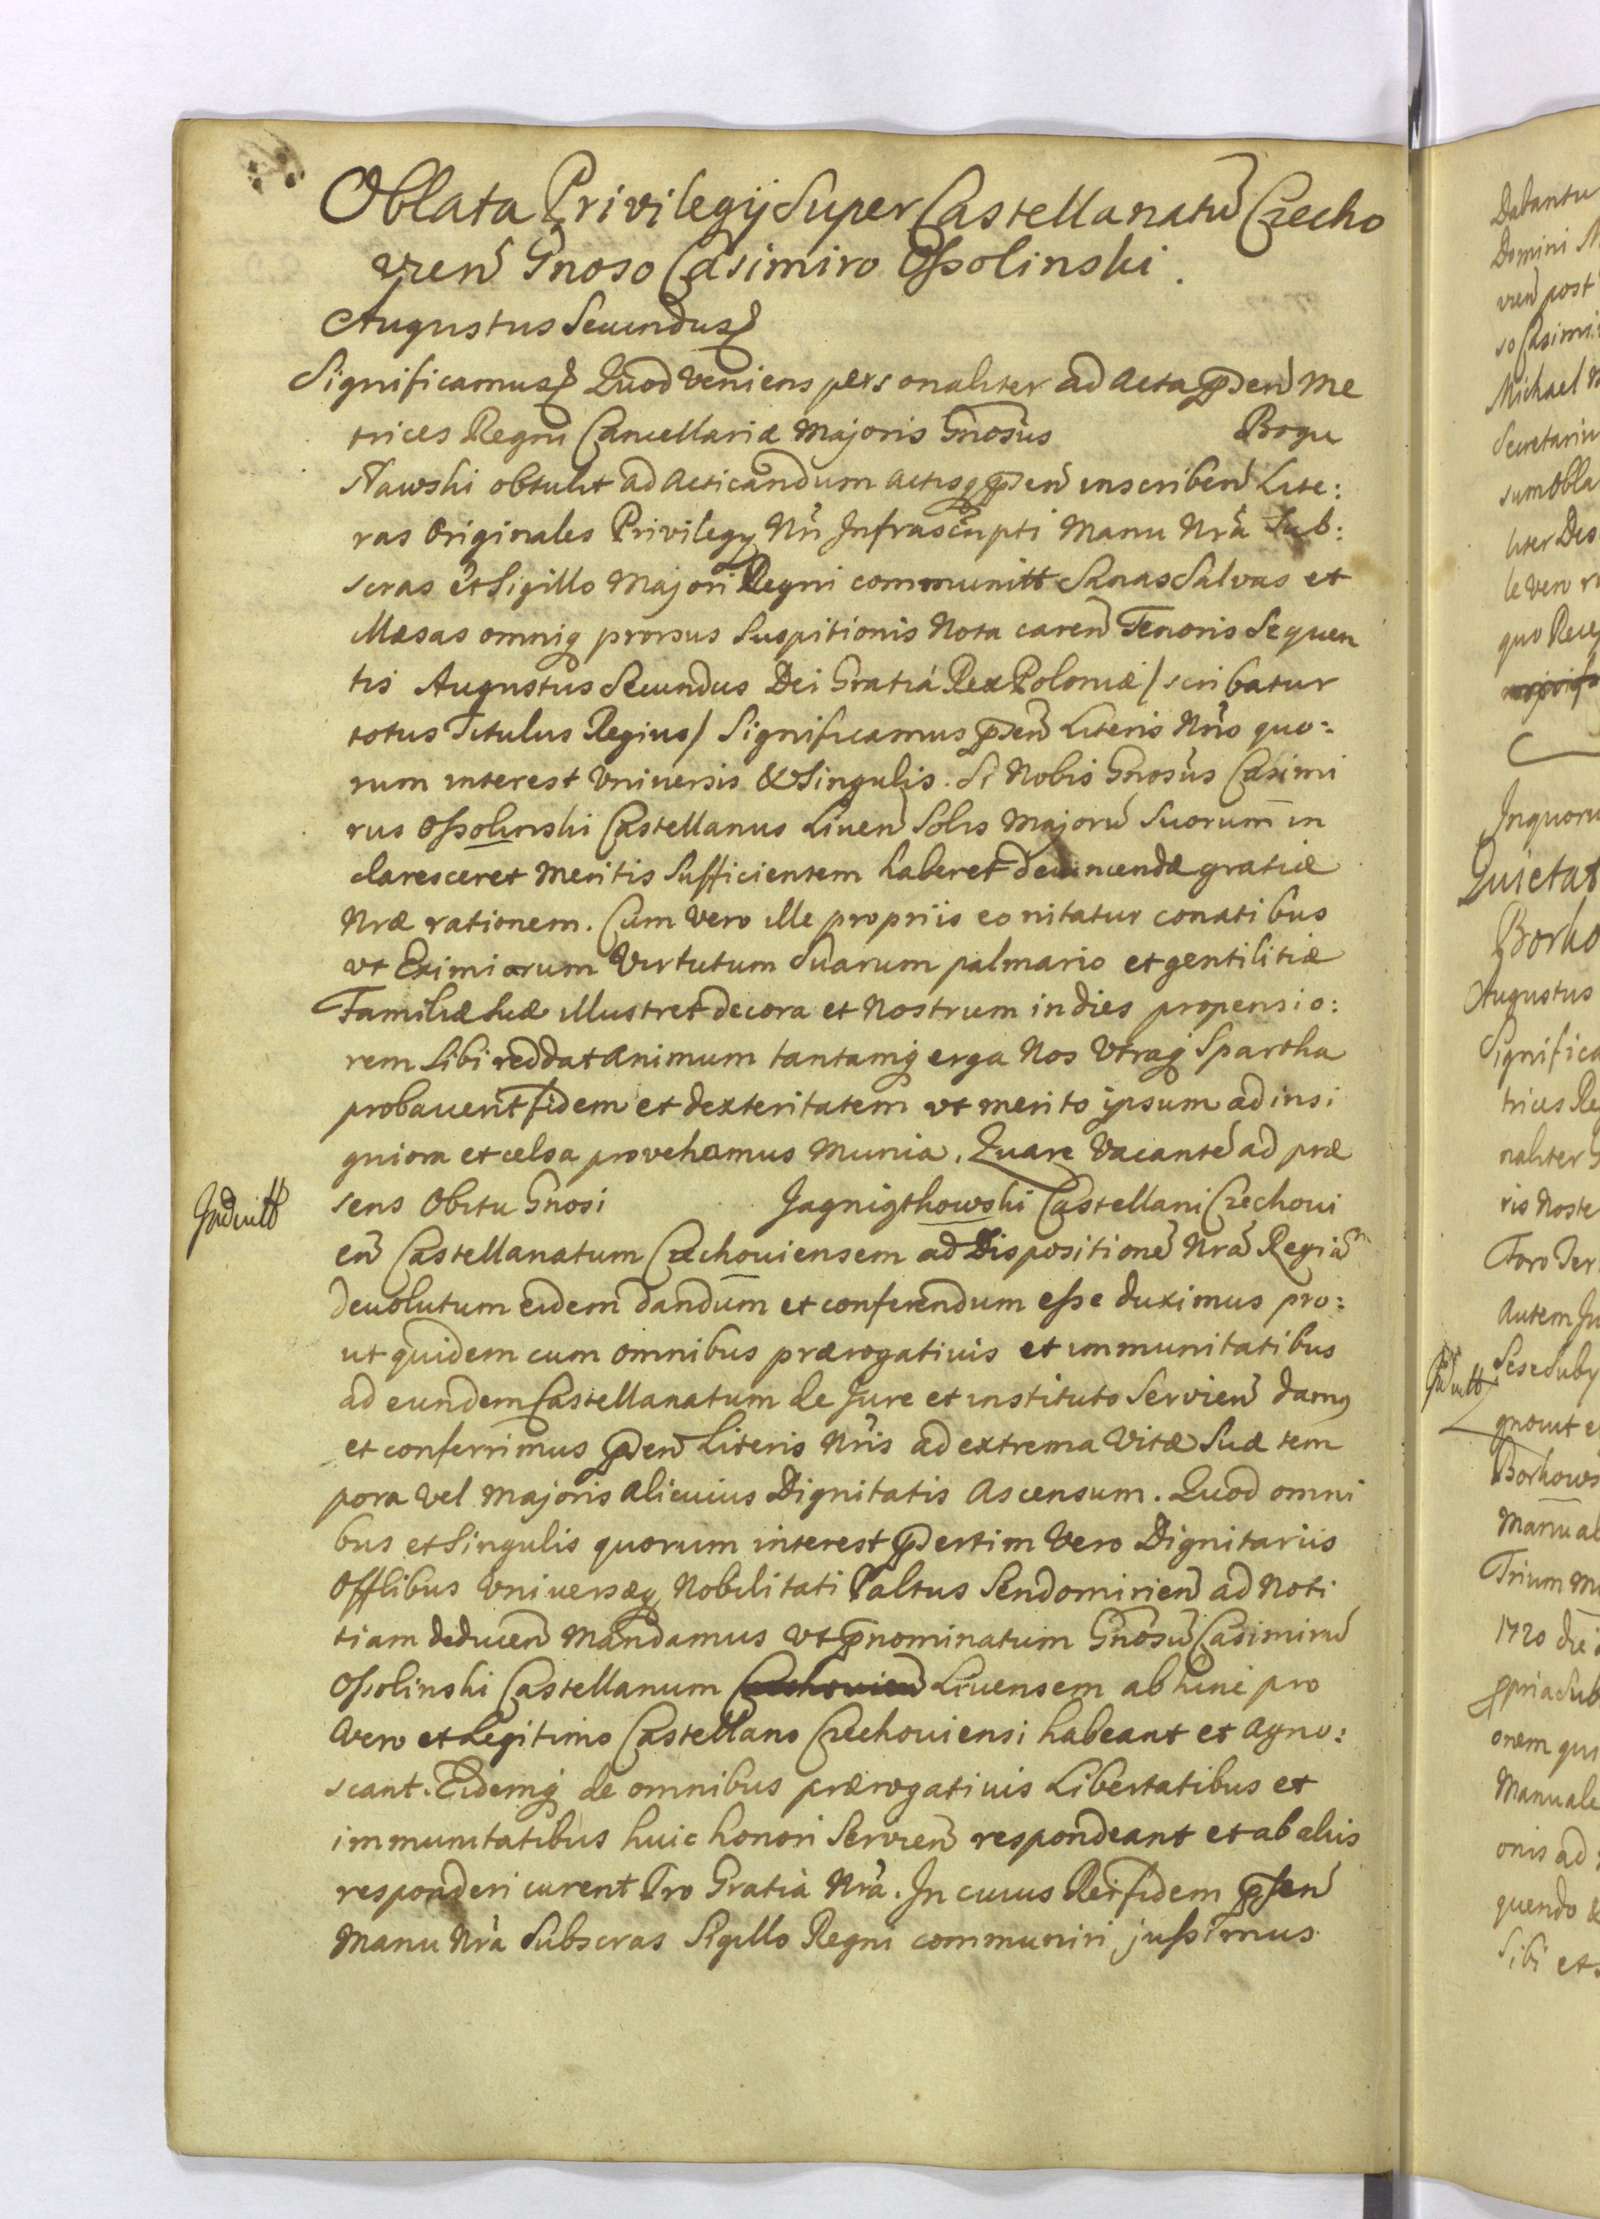 Oblata Privilegij Super Castellanatu Czecho
vien Gnoso Casimiro Ossolinski.
Augustus Secundus
Significamus Quod veniens personaliter ad Acta pnden Me
trices Regni Cancellariæ Majoris Gnosus Bogu
sławski obtulit ad Acticandum Actisq pnden inscriben Lite:
ras Originales Privilegy Nri Infrascripti Manu Nra Sub:
scras et Sigillo Majori Regni communitt Sanas Salvas et
Illæsas omniq prorsus Suspitionis Nota caren Tenoris Sequen
tis Augustus Secundus Dei Gratiá Rex Poloniæ / scribatur
totus Titulus Regius / Significamus pnden Literis Nris quo:
rum interest Vniuersis & Singulis. Si Nobis Gnosus Casimi
rus Ossolinski Castellanus Liuen Solis Majoru Suorum in
claresceret Meritis Sufficientem haberet deuincendæ gratiæ
Nræ rationem. Cum vero ille propriis eo nitatur conatibus
vt Eximiarum Virtutum Suarum palmario et gentilitiæ
Familiæ Suæ illustret decora et Nostrum indies propensio:
rem Sibi reddat Animum tantamq erga Nos Vtraq Spartha
probauerit fidem et dexteritatem vt merito ipsum ad insi
gniora et celsa provehamus Munia. Quare Vacante ad præ
Induitt
sens Obitu Gnosi Jagnigthowski Castellani Czechoui
en Castellanatum Czechouiensem ad Dispositione Nra Regiam
deuolutum eidem dandum et conferendum esse duximus pro:
ut quidem cum omnibus prærogatiuis et immunitatibus
ad eundem Castellanatum de Jure et instituto Servien damq
et conferrimus pnden Literis Nris ad extrema Vitæ Suæ tem
pora vel Majoris alicuius Dignitatis Ascensum. Quod omni
bus et Singulis quorum interest pndertim Vero Dignitariis
Offlibus Vniversæq Nobilitati Paltus Sendomirien ad Noti
tiam deducen Mandamus vt pnominatum Gnosu Casimiru
Ossolinski Castellanum Czechouien Liuensem ab hinc pro
vero et Legitimo Castellano Czechouiensi habeant et Agno:
scant. Eidemq de omnibus prærogatiuis Libertatibus et
immunitatibus huic honori Servien respondeant et ab aliis
responderi curent Pro Gratia Nra. In cuius Rei fidem pnsen
Manu Nra Subscras Sigillo Regni communiri jussimus
Dabantu
Domini
vien post
so Casimi
Michael
Secretariu
sum Obla
liter Des
le vero
quo Rece
Inquoru
Quietat
Borko
Augustus
Significa
trices Re
naliter
ris Noste
Foro
Autem
Induitt
Sese Suby
gnouit
Borkows
Manual
Trium
1720 die
ppria Sub
onem
Manuale
onis ad
quendo
Sibi et